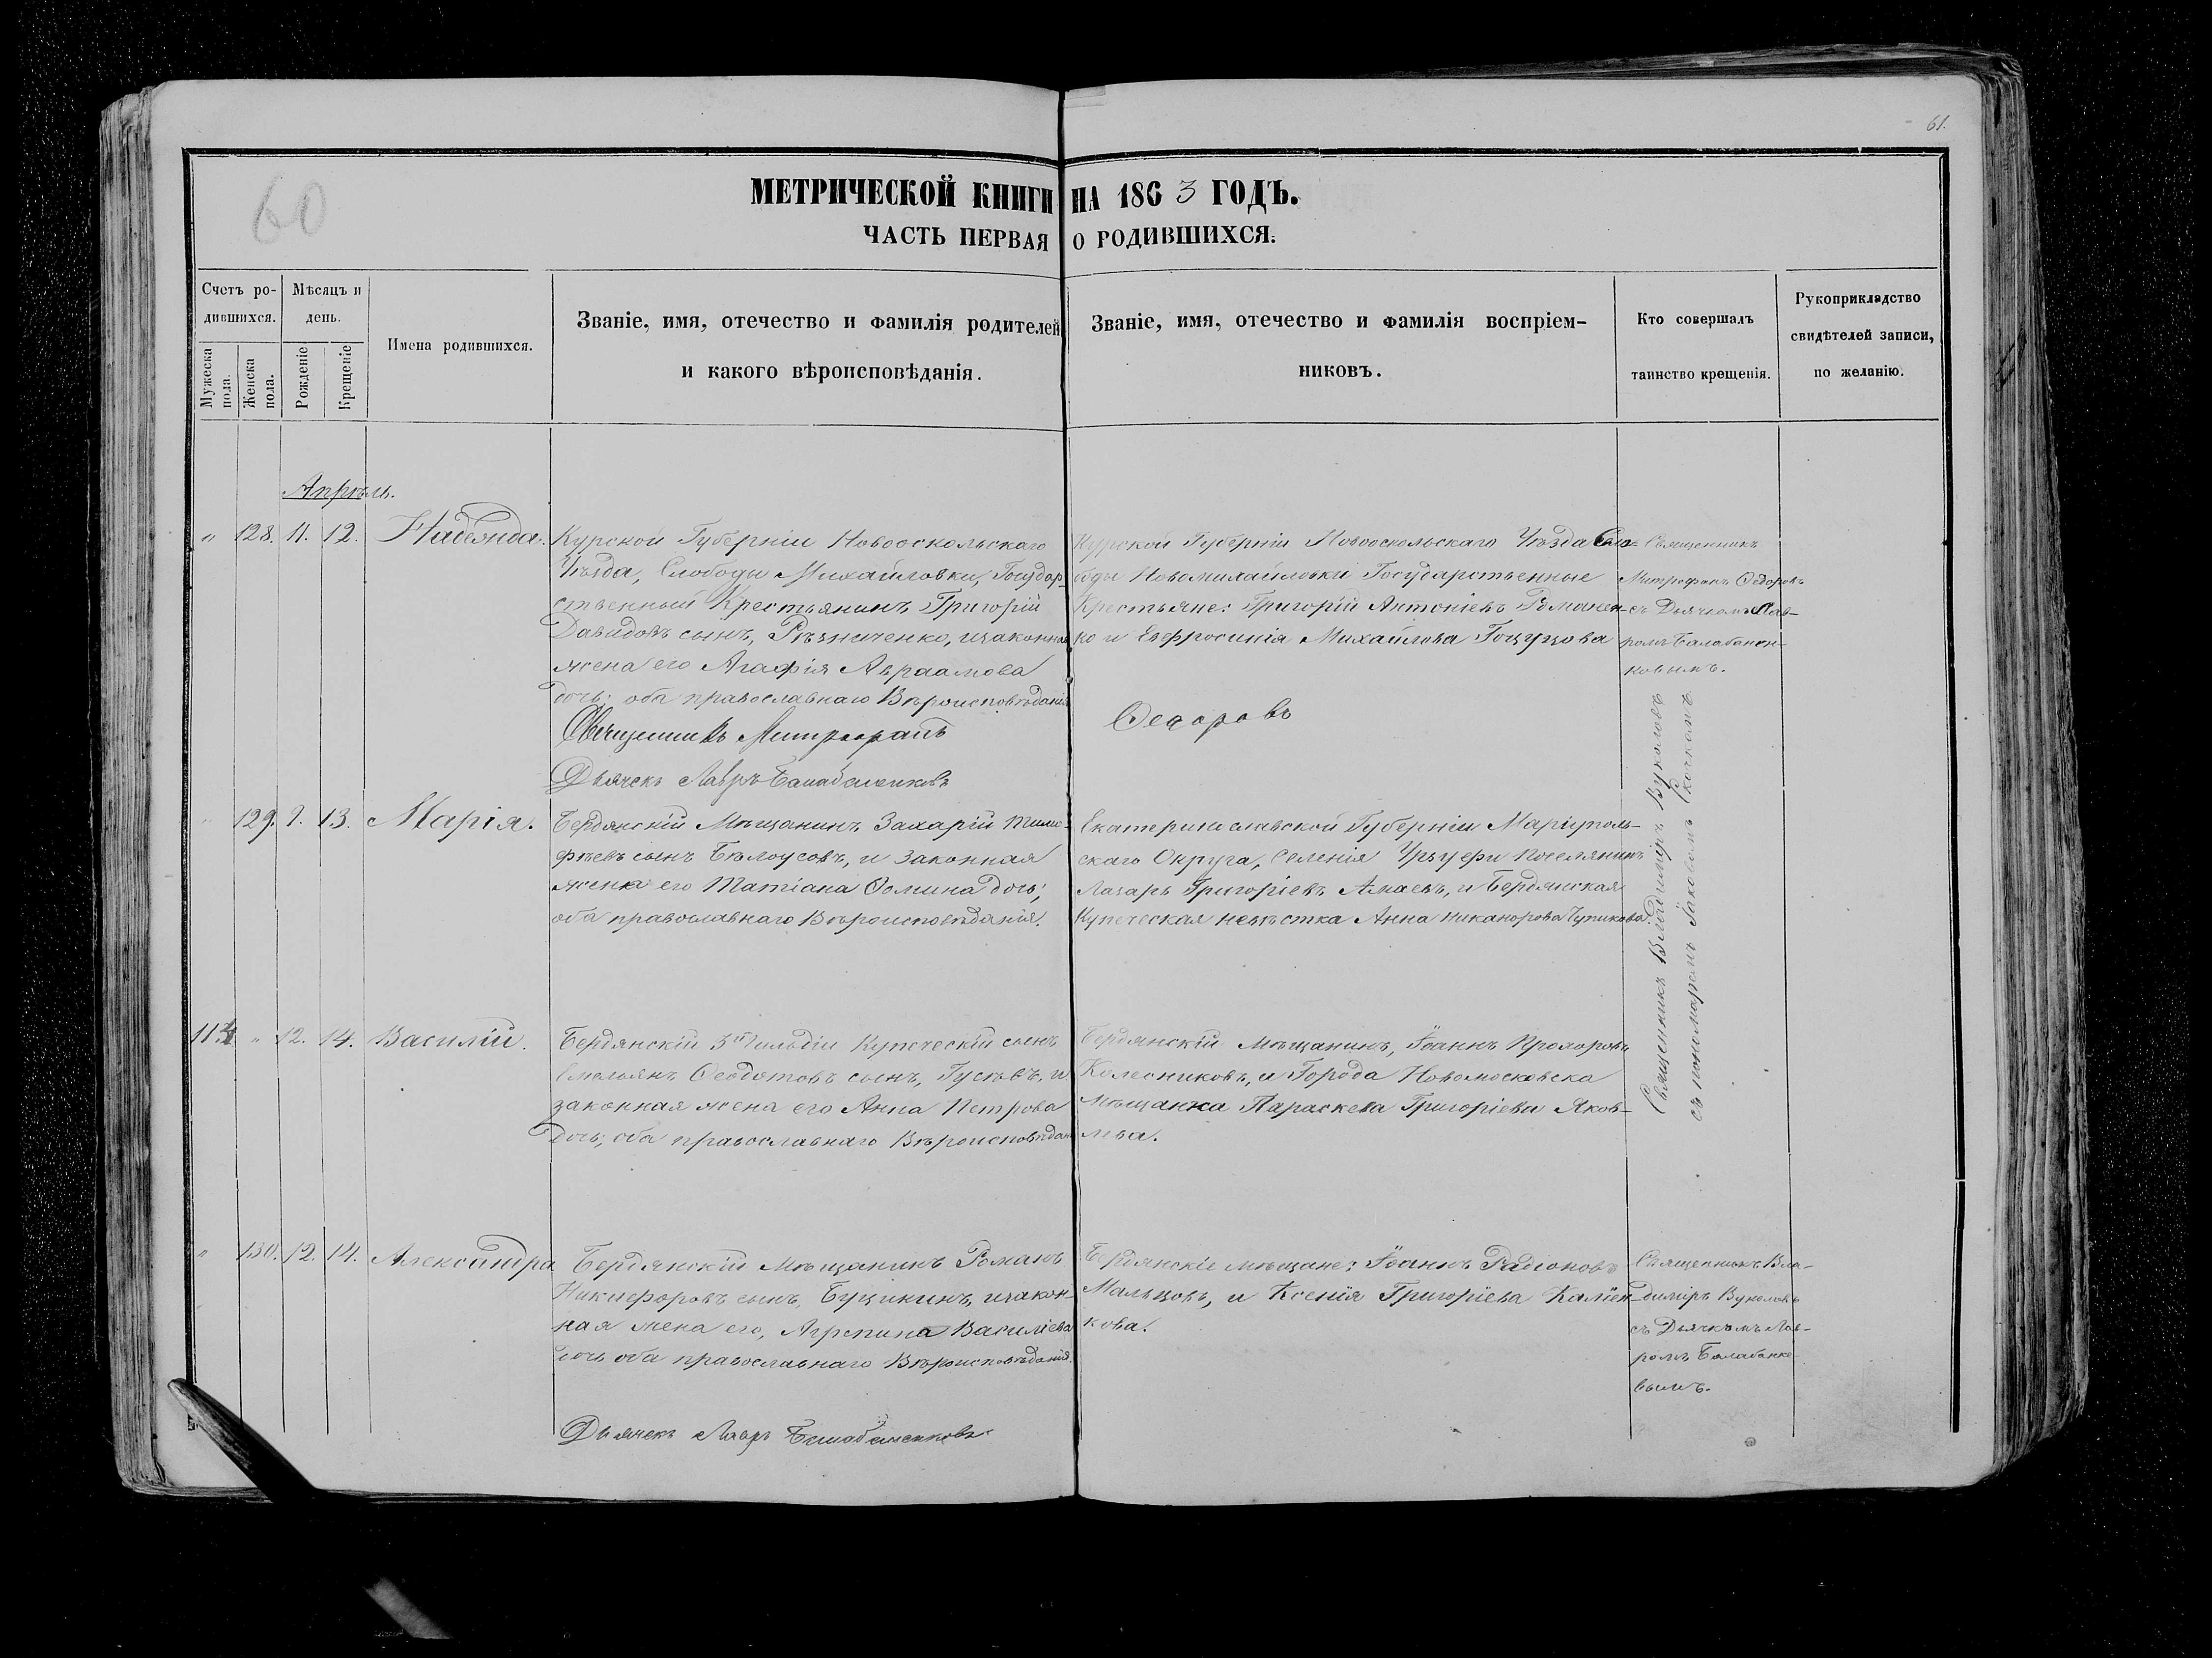 61.
60
МЕТРИЧЕСКОЙ КНИГИ НА 1863 ГОДЪ.
ЧАСТЬ ПЕРВАЯ О РОДИВШИХСЯ.
Счетъ ро-
дившихся.
Мужеска
пола.
Женска
пола.
Мѣсяцъ и
день.
Рожденіе
Крещеніе
Имена родившихся.
Званіе, имя, отечество и фамилія родителей
и какого вѣроисповѣданія.
Званіе, имя, отечество и фамилія воспріем-
никовъ.
Кто совершалъ
таинство крещенія.
Рукоприкладство
свидѣтелей записи,
по желанію.
Апрѣль.
" 128. 11. 12. Надежда.
Курской Губерніи Новооскольскаго
Уѣзда, Слободы Михайловки, Государ-
ственный Крестьянинъ Григорій
Давидовъ сынъ, Рѣзниченко, и законная
жена его Агафія Авраамова
дочь; оба православнаго Вѣроисповѣданія
Священникъ Митрофанъ
Дьячекъ Лавръ Балабаненковъ
Курской Губерніи Новооскольскаго Уѣзда Сло-
боды Новомихайловки Государственные
Крестьяне: Григорій Антоніевъ Романен-
ко и Евфросинія Михайлова Гоцуцова
Федоровъ
Священникъ
Митрофанъ Федоровъ
съ Дьячкомъ Лав-
ромъ Балабанен-
ковымъ.
" 129. 9. 13. Марія.
Бердянскій Мѣщанинъ Захарій Тимо-
фѣевъ сынъ Бѣлоусовъ, и законная
жена его Татіана Фомина дочь;
оба православнаго Вѣроисповѣданія.
Екатеринославской Губерніи Маріуполь-
скаго Округа, Селенія Урзуфи поселянинъ
Лазарь Григоріевъ Амаевъ, и Бердянская
Купеческая невѣстка Анна Никанорова Чупикова.
Священникъ Владиміръ Вуколовъ
съ пономаремъ Іаковомъ
113 " 12. 14. Василій.
Бердянскій 3й Гильдіи Купеческій сынъ
Емельянъ Феодотовъ сынъ, Гусевъ, и
законная жена его Анна Петрова
дочь; оба православнаго Вѣроисповѣдан
Бердянскій Мѣщанинъ, Іоаннъ Прохоровъ
Колесниковъ, и Города Новомосковска
Мѣщанка Параскева Григоріева Яков-
лева.
" 130. 12. 14. Александра
Бердянскій Мѣщанинъ Романъ
Никифоровъ сынъ, Буцикинъ, и закон-
ная жена его, Агрепина Василіева
дочь оба православнаго Вѣроисповѣданія.
Дьячекъ Лавръ Балабаненковъ
Бердянскіе мѣщане: Іоаннъ Радіоновъ
Мальцовъ, и Ксенія Григоріева Калён-
кова.
Священникъ Вла-
диміръ Вуколовъ
съ Дьячкомъ Лав-
ромъ Балабанко-
вымъ.